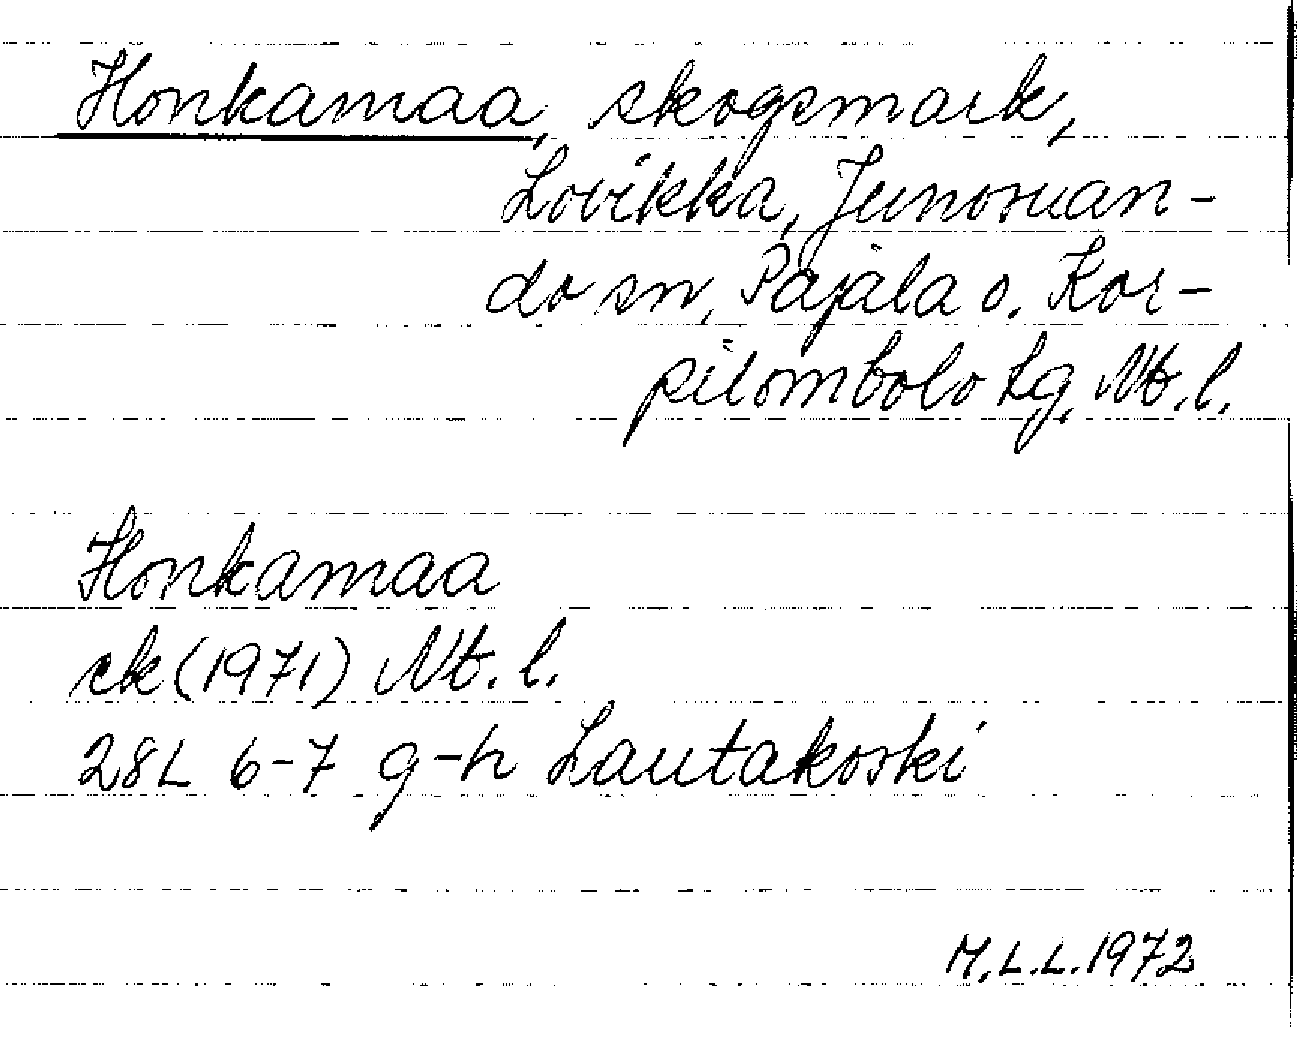 Honkamaa, skogsmark,
Lovikka, Junosuan-
do sn, Pajala o. Kor-
pilombolo tg, Nb. l.
Honkamaa
ek (1971) Nb. l.
28L 6-7 g-h Lautakoski
M.L.L. 1972